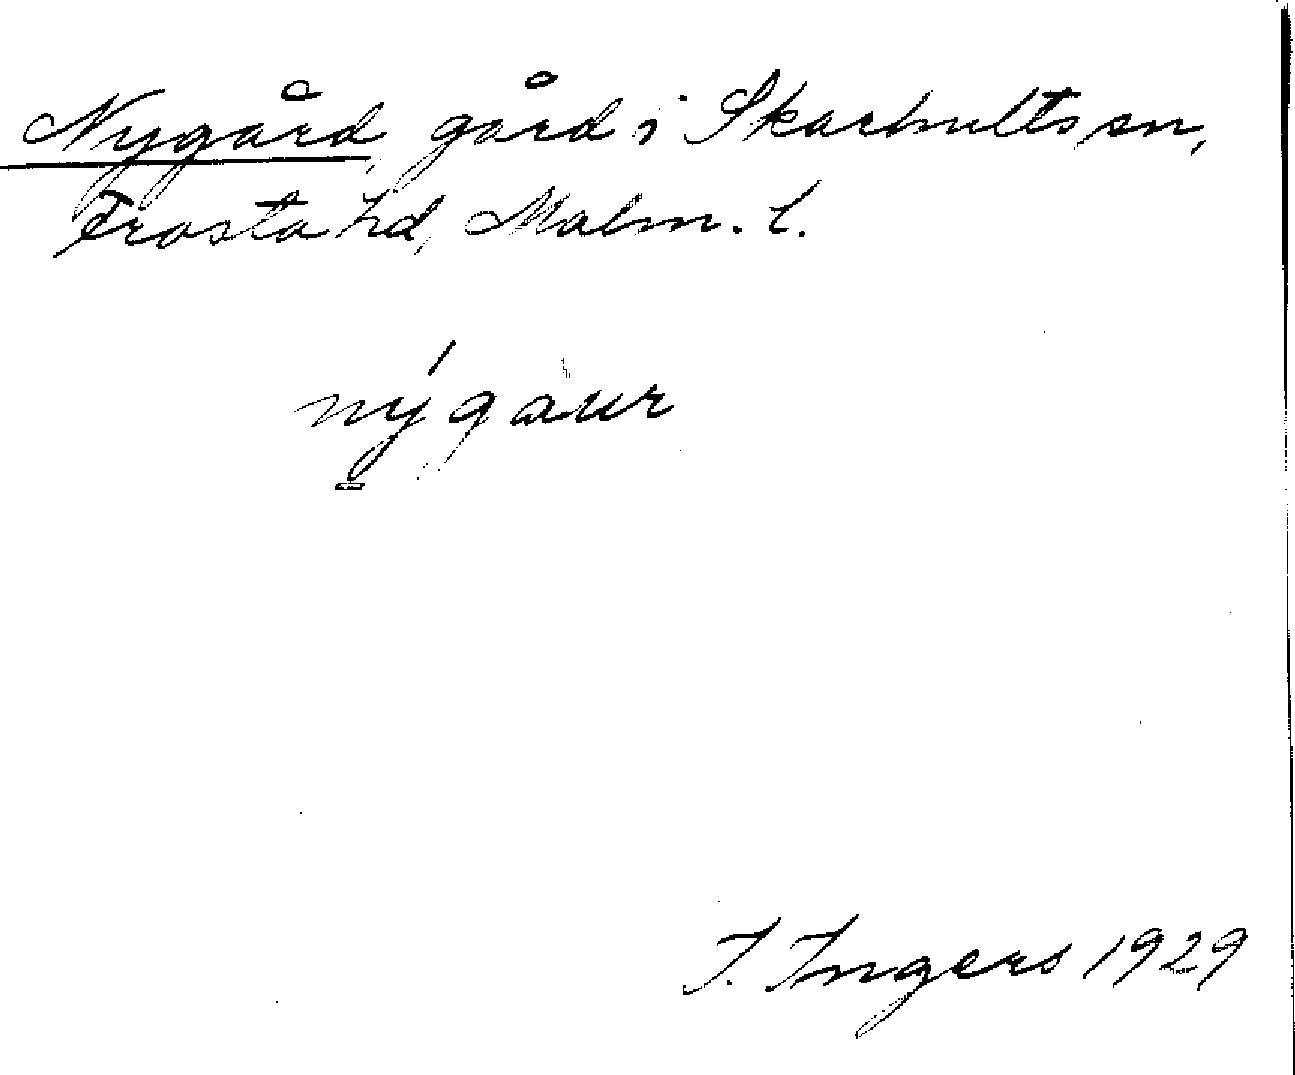 Nygård, gård i Skarhults sn,
Frosta hd, Malm. l.
nýgàur
I. Ingers 1929